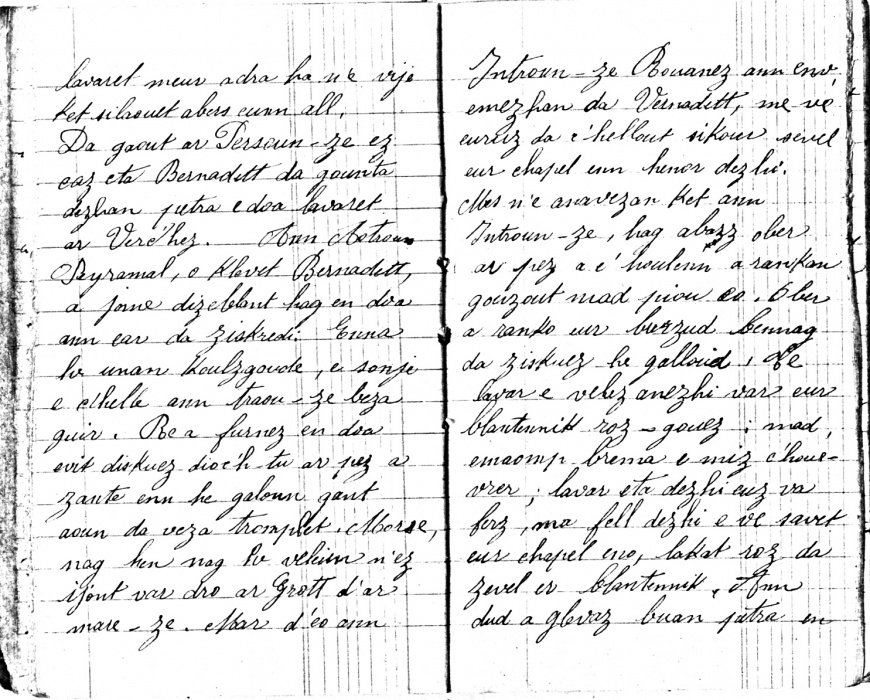 lavaret meur adra ha n'e vije
ket silaouet abers eunn all.
Da gaout ar Persoun-ze ez
eaz eta Bernadett da gounta
dezhan petra e doa lavaret
ar Verc'hez. Ann Aotrou
Peyramal, o klevet Bernadett,
a jome dizeblant hag en doa
ann ear da ziskredi. Enna
he unan koulzgoude, e sonje
e c'helle ann traou-ze beza
guir. Re a furnez en doa
evit diskuez dioc'h-tu ar pez a
zante enn he galoun gant
aoun da veza tromplet. Morse,
nag hen nag he vikiri n'ez
ijont var dro ar Grott d'ar
mare-ze. Mar d'eo ann
Introun-ze Rouanez ann env,
emezhan da Vernadett, me ve
eürüz da c'hellout sikour sevel
eur chapel enn henor dezhi.
Mes n'e anavezan ket ann
Introun-ze, hag abarz ober
ar pez a c'houlenn a rankan
gouzout mad piou eo. Ober
a ranko eur burzud bennag
da ziskuez he galloud. Te
lavar e velez anezhi var eur
blantennik roz-gouez ; mad,
emaomp brema e miz c'houe-
vrer ; lavar eta dezhi euz va
ferz, ma fell dezhi e ve savet
eur chapel eno, lakat roz da
zevel er blantennik. Ann
dud a glevaz buan petra en